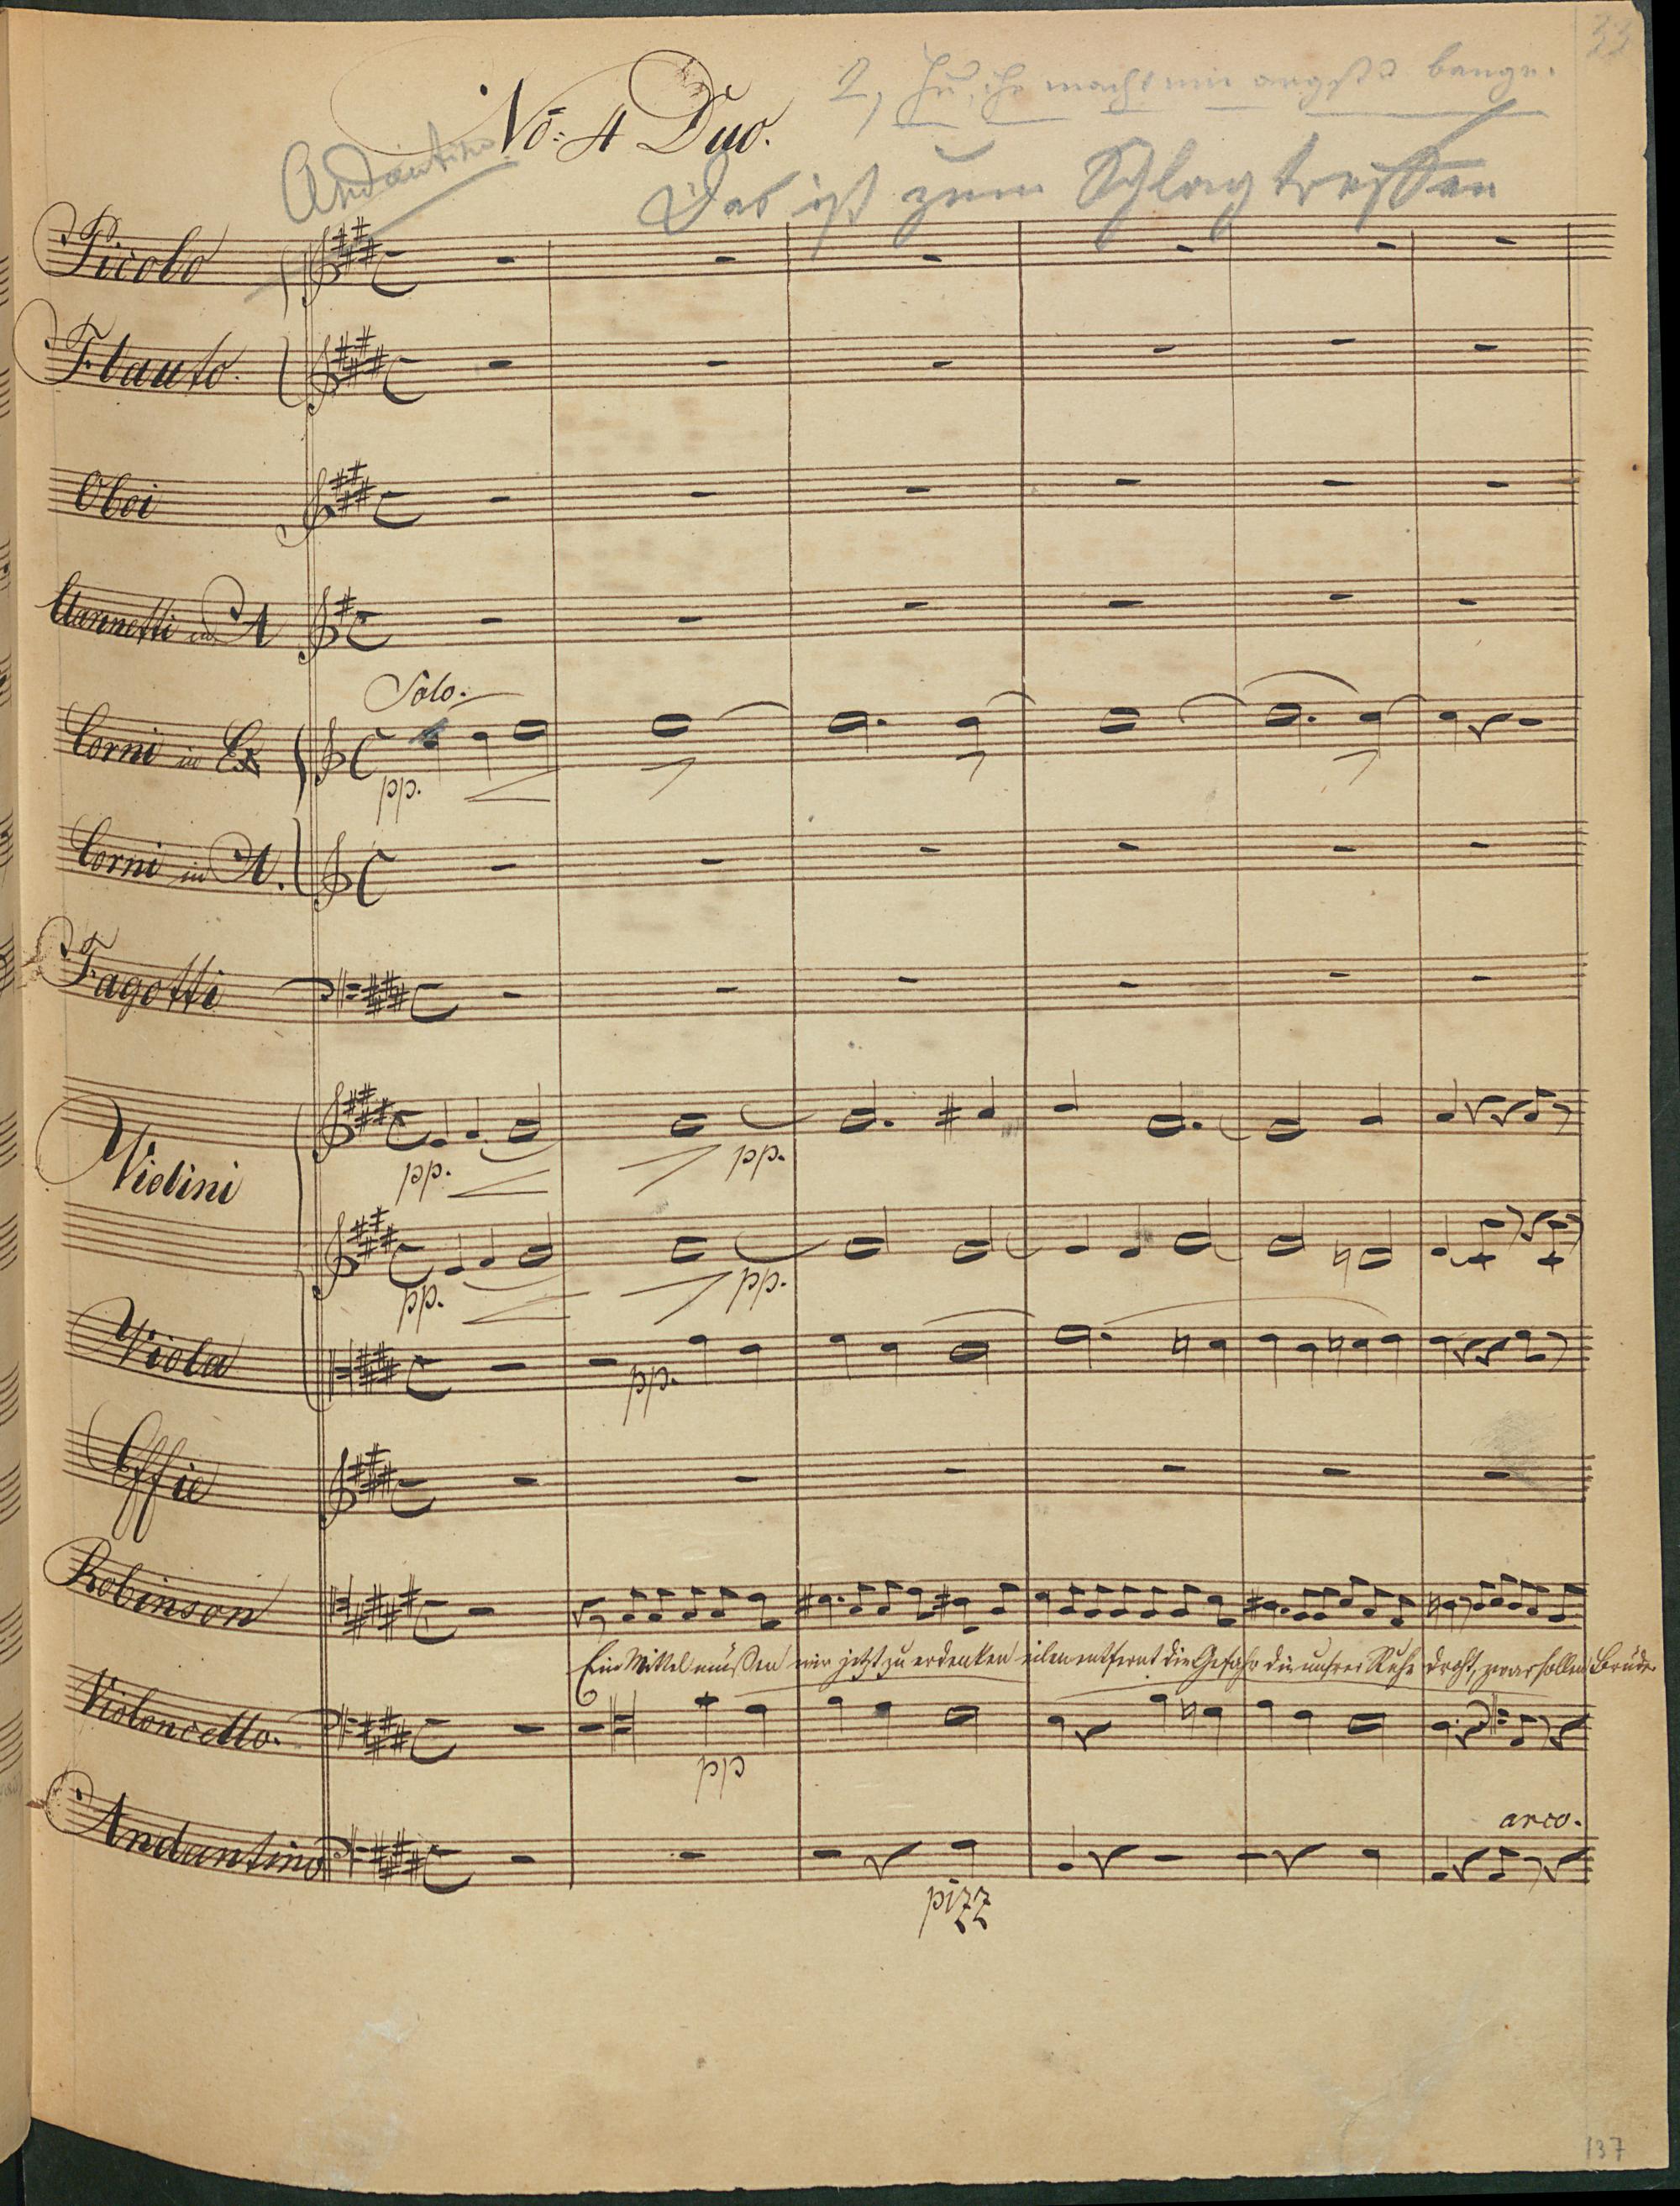 33
2, Hu, ihr macht mir angst u bange.
No: 4 Duo.
Andantino
Das ist zum Schlag treffen
Picolo
Flauto.
Oboi
Clarinetti in A
Solo.
Corni in E
pp.
Corni in A.
Fagotti
Violini
pp. pp.
pp. pp.
Viola
pp.
Effie
Robinson
Ein Mittel müßen wir jetzt zu erdenken eilen entfernt die Gefahr die unsrer Ruhe droht, zwar sollen Brüder
Violoncello.
pp
arco.
Andantino
pizz
137